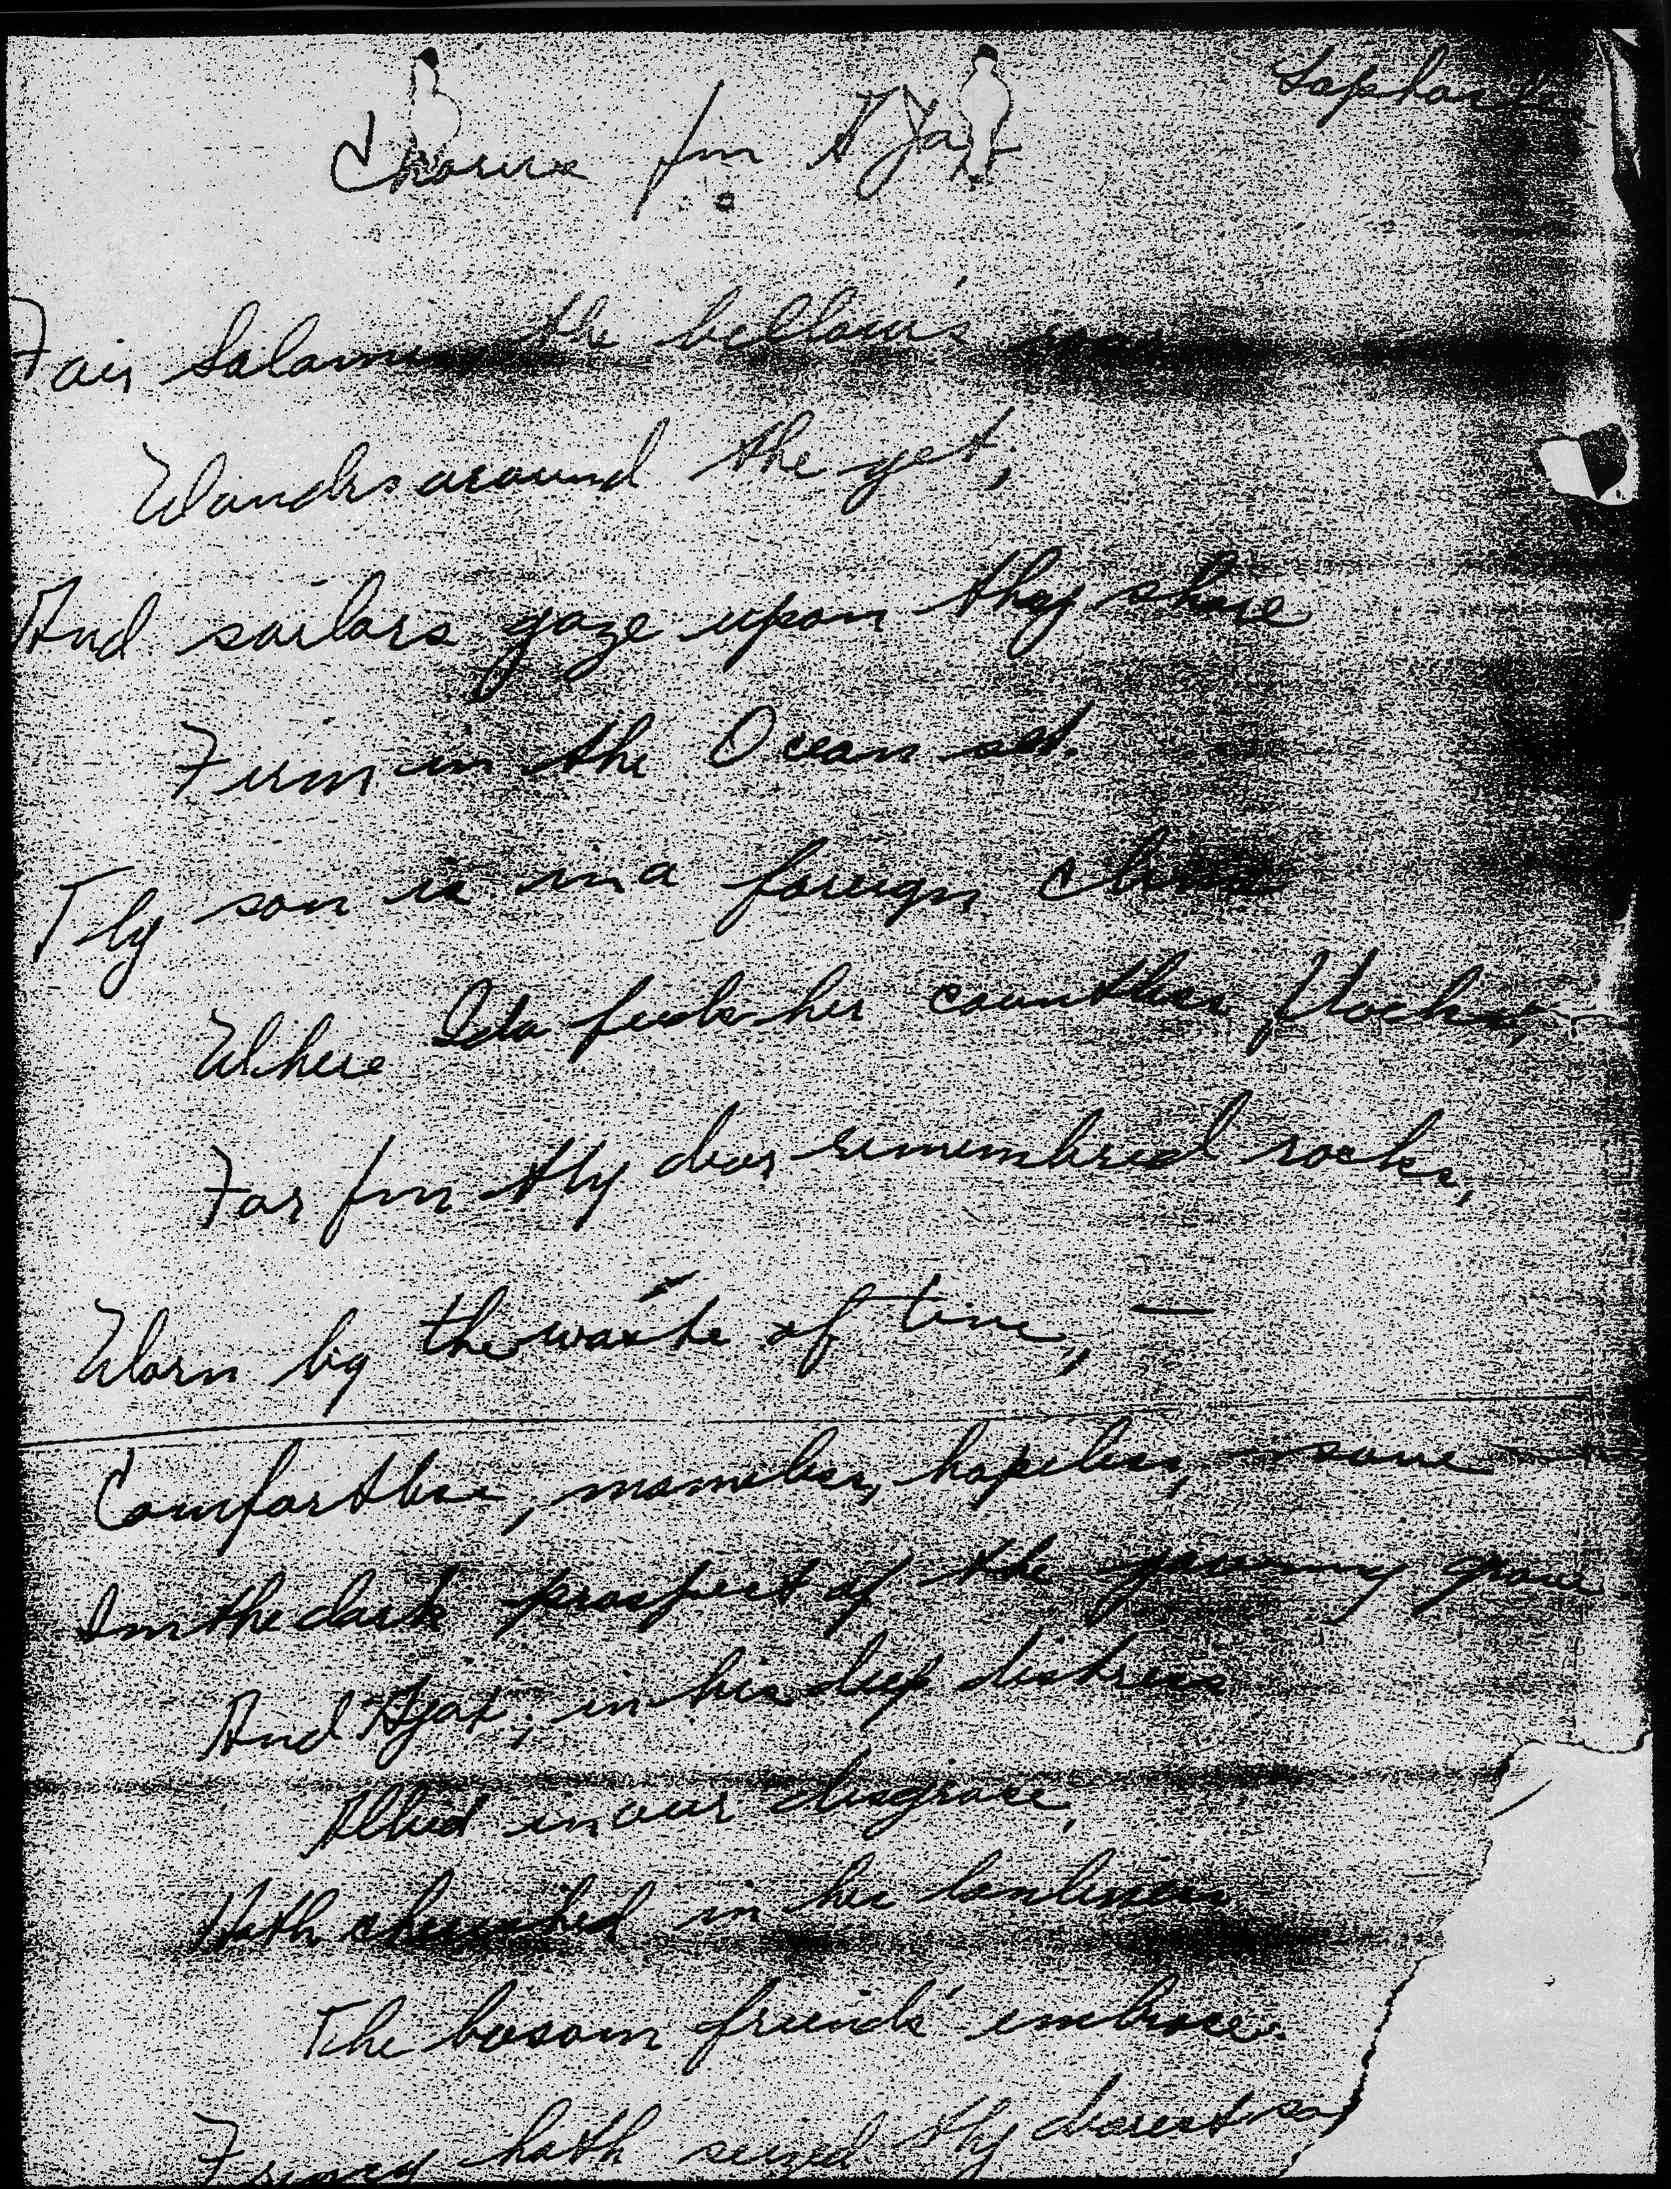 Sophocles
Chorus fm AJax
Fair Salamis the bellow's roar
Wanders around the yet;
And sailors gaze upon they shore
Firm in the Ocean set.
Thy son is in a foreign clime
Where Ida feeds her countless flocks,
Far fm thy dear remembred rocks,
Worn by the waste of time, —
Comfortless, nameless, hopeless, save
In the dark prospect of the yawning grave
And Ajax, in his deep distress
Allied in our disgrace,
Hath cherished in his lonliness
The bosom friends' embrace.
Frenzy hath seized thy dearest so